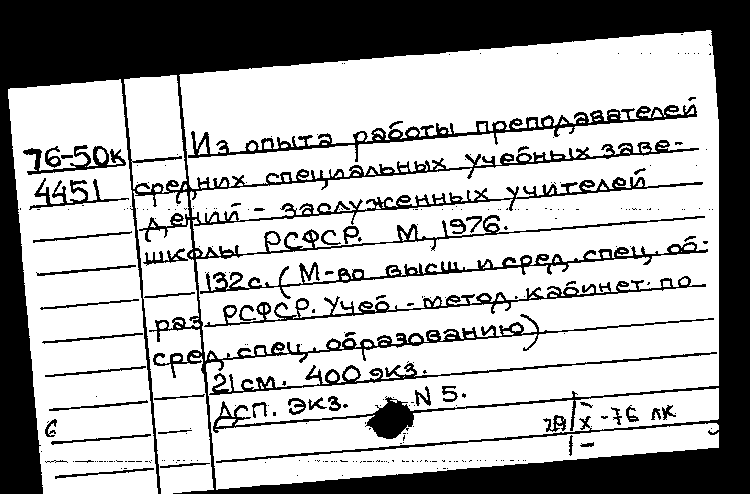 76-50к
4451
Из опыта работы преподавателей
средних специальных учебных заве-
дений - заслуженных учителей
школы РСФСР. М., 1976.
132с. (М-во высш. и сред. спец. об-
раз. РСФСР. Учеб.-метод. кабинет по
сред. спец. образованию)
21см. 400 экз.
ДСП. Экз. N 5.
6
X -76 лк